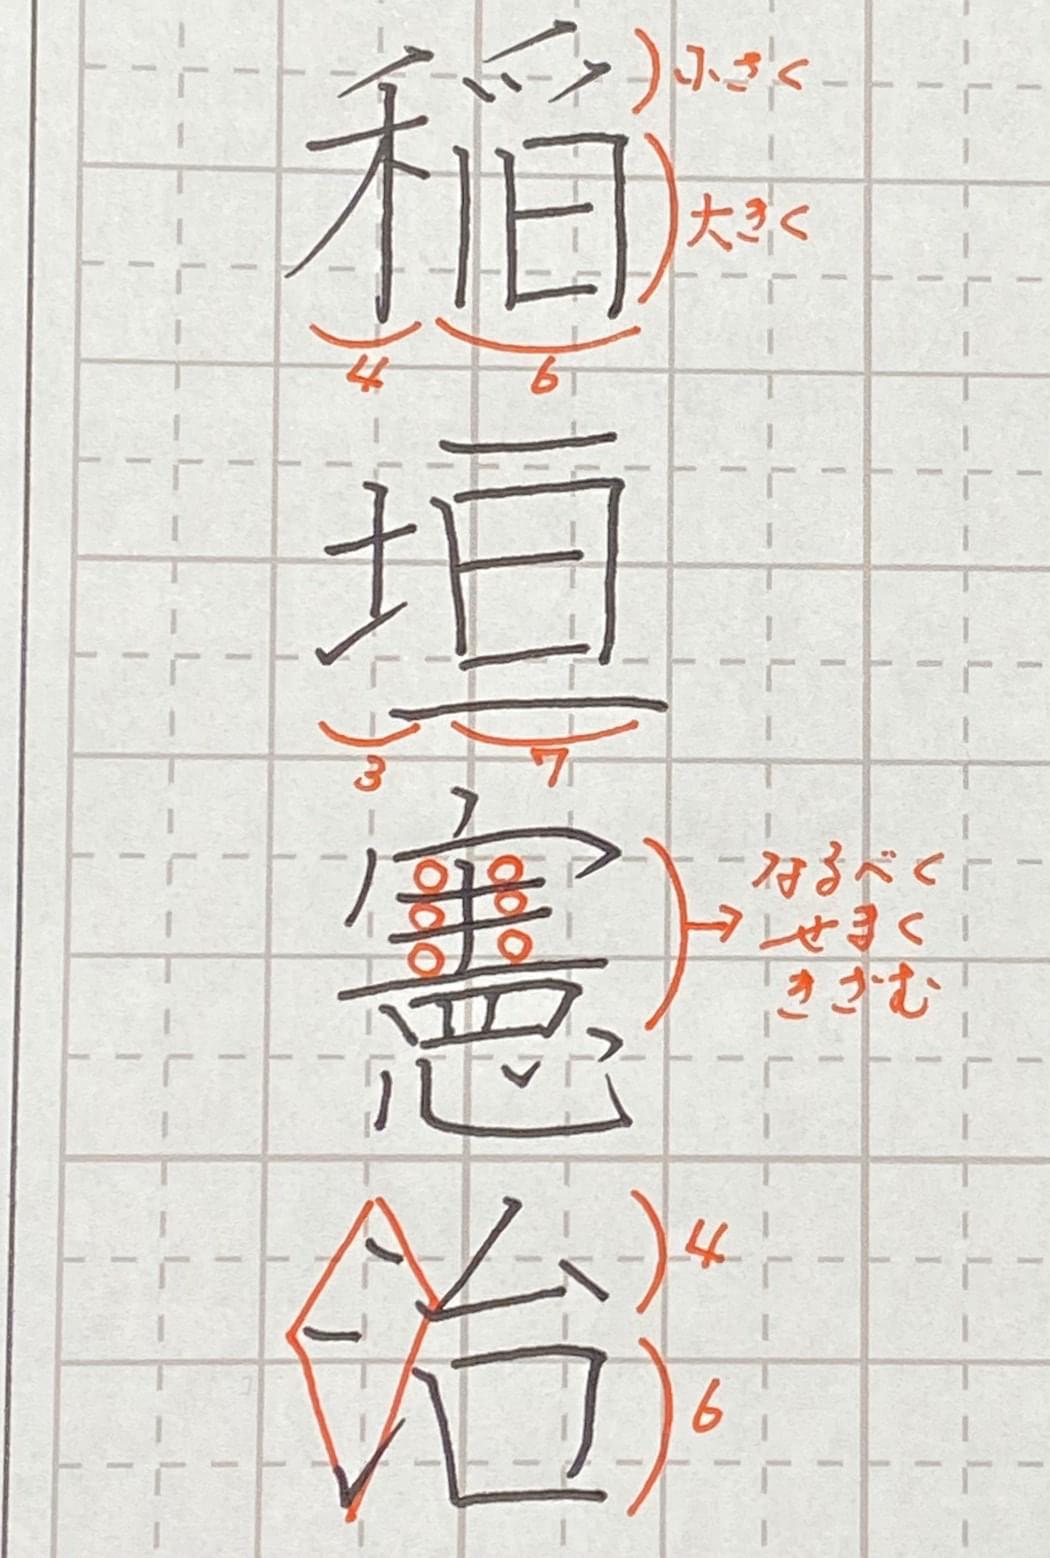 稲垣憲治
小さく
大きく
4 6
3 7
なるべく
せまく
きざむ
4
6